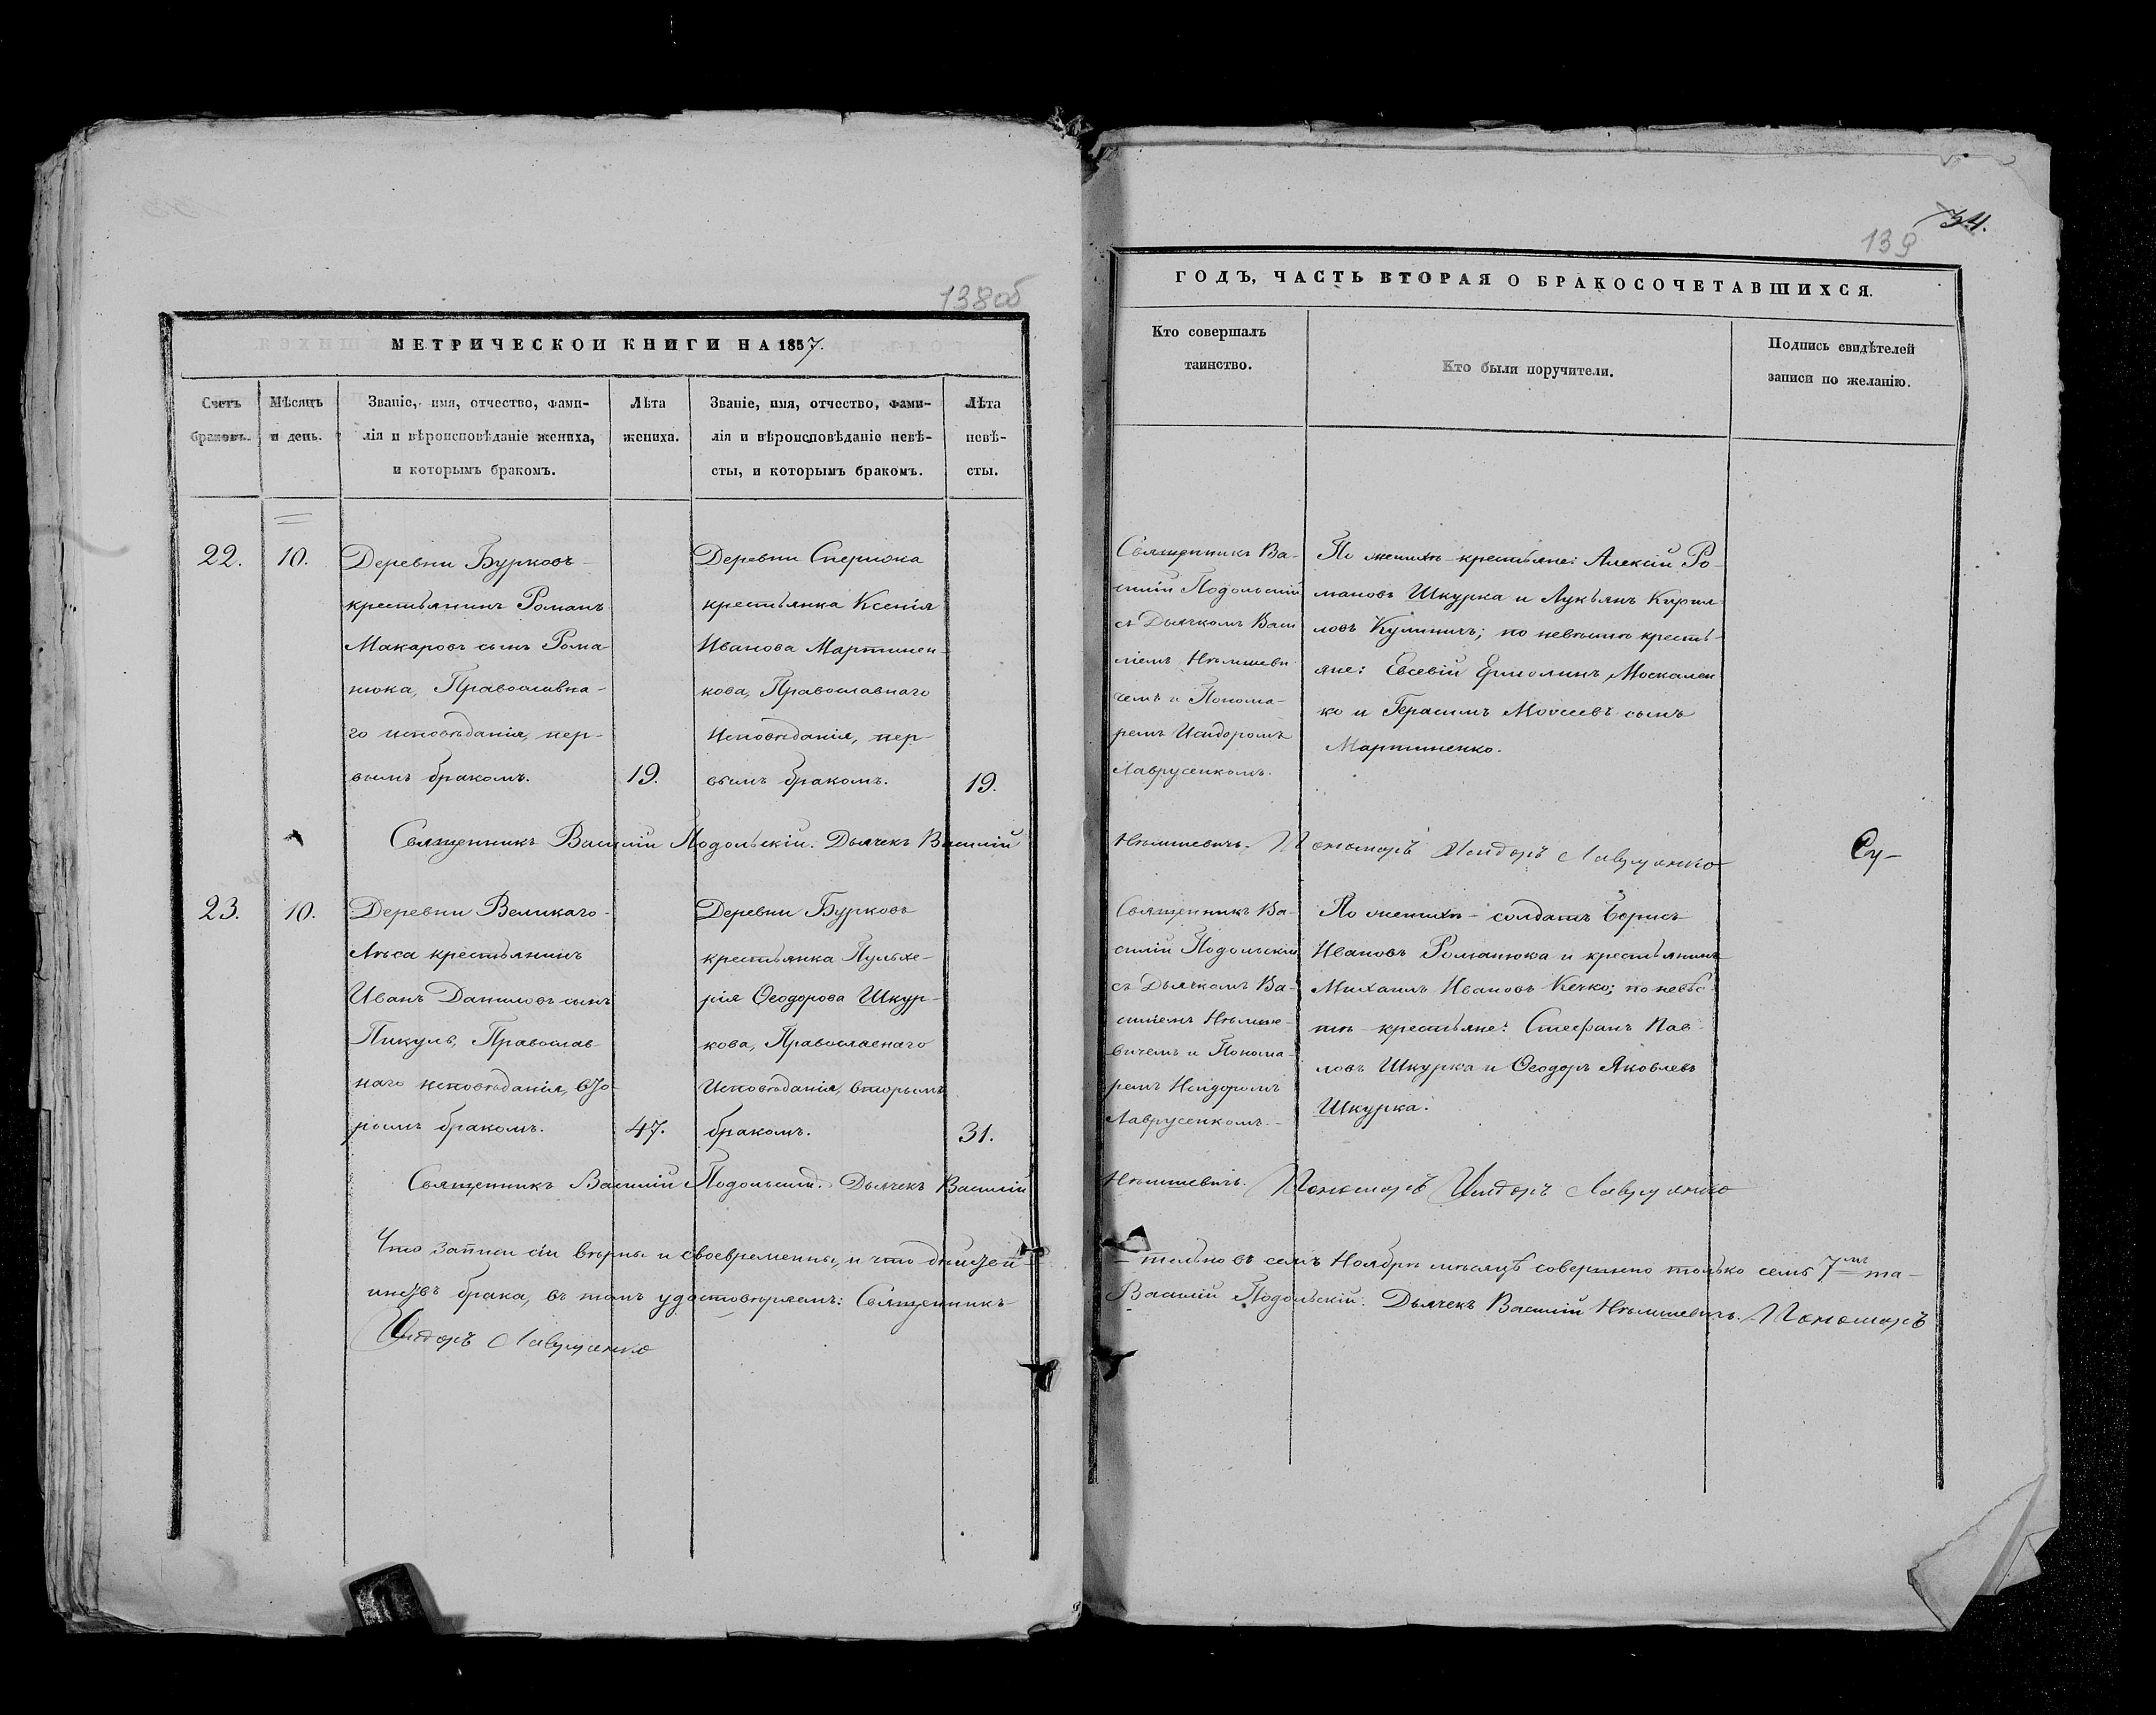 138об
МЕТРИЧЕСКОЙ КНИГИ НА 1857.
Счетъ
браковъ.
Мѣсяцъ
и день.
Званіе, имя, отчество, фами-
лія и вѣроисповѣданіе жениха,
и которымъ бракомъ.
Лѣта
жениха.
Званіе, имя, отчество, фами-
лія и вѣроисповѣданіе невѣ-
сты, и которымъ бракомъ.
Лѣта
невѣ-
сты.
22.
10.
Деревни Бурковъ
крестьянинъ Романъ
Макаровъ сынъ Рома-
нюка, Православна-
го исповѣданія, пер-
вымъ бракомъ.
19.
Деревни
крестьянка Ксенія
Иванова Мартинен-
кова, Православнаго
Исповѣданія, пер-
вымъ бракомъ.
19.
Священникъ Василій Подольскій. Дьячекъ Василій
23.
10.
Деревни Великаго-
Лѣса крестьянинъ
Иванъ Даниловъ сынъ
Пикуль, Православ-
наго исповѣданія, вто-
рымъ бракомъ.
47.
Деревни Бурковъ
крестьянка Пульхе-
рія Ѳеодорова Шкур-
кова, Православнаго
Исповѣданія, вторымъ
бракомъ.
31.
Священникъ Василій Подольскій. Дьячекъ Василій
Что записи сіи вѣрны и своевременны, и что дѣйст-
брака, въ томъ удостовѣряемъ: Священникъ
Исидоръ Лаврусенко
34.
139
ГОДЪ, ЧАСТЬ ВТОРАЯ О БРАКОСОЧЕТАВШИХСЯ.
Кто совершалъ
таинство.
Кто были поручители.
Подпись свидѣтелей
записи по желанію.
Священникъ Ва-
силій Подольскій
съ Дьячкомъ Васи
ліемъ Нѣмшеви
чемъ и Понома-
ремъ Исидоромъ
Лаврусенкомъ.
По женихѣ - крестьяне: Алексій Ро-
мановъ Шкурка и Лукьянъ Кирил
ловъ Кулиничъ; по невѣстѣ кресть-
яне: Евсевій Ермолинъ Москален
ко и Герасимъ Моѵсеевъ сынъ
Мартиненко.
Нѣмшевичъ. Пономарь Исидоръ Лаврусенко
Су-
Священникъ Ва-
силій Подольскій
съ Дьячкомъ Ва-
силіемъ Нѣмше-
вичемъ и Понома-
ремъ Исидоромъ
Лаврусенкомъ.
По женихѣ - солдатъ Борисъ
Ивановъ Романюка и крестьянинъ
Михаилъ Ивановъ Кечко; по невѣс-
тѣ - крестьяне: Стефанъ Пав-
ловъ Шкурка и Ѳеодоръ Яковлевъ
Шкурка.
Нѣмшевичъ. Пономарь Исидоръ Лаврусенко
тельно въ семъ Ноябрѣ мѣсяцѣ совершено только семь 7мь та-
Василій Подольскій. Дьячекъ Василій Нѣмшевичъ. Пономарь